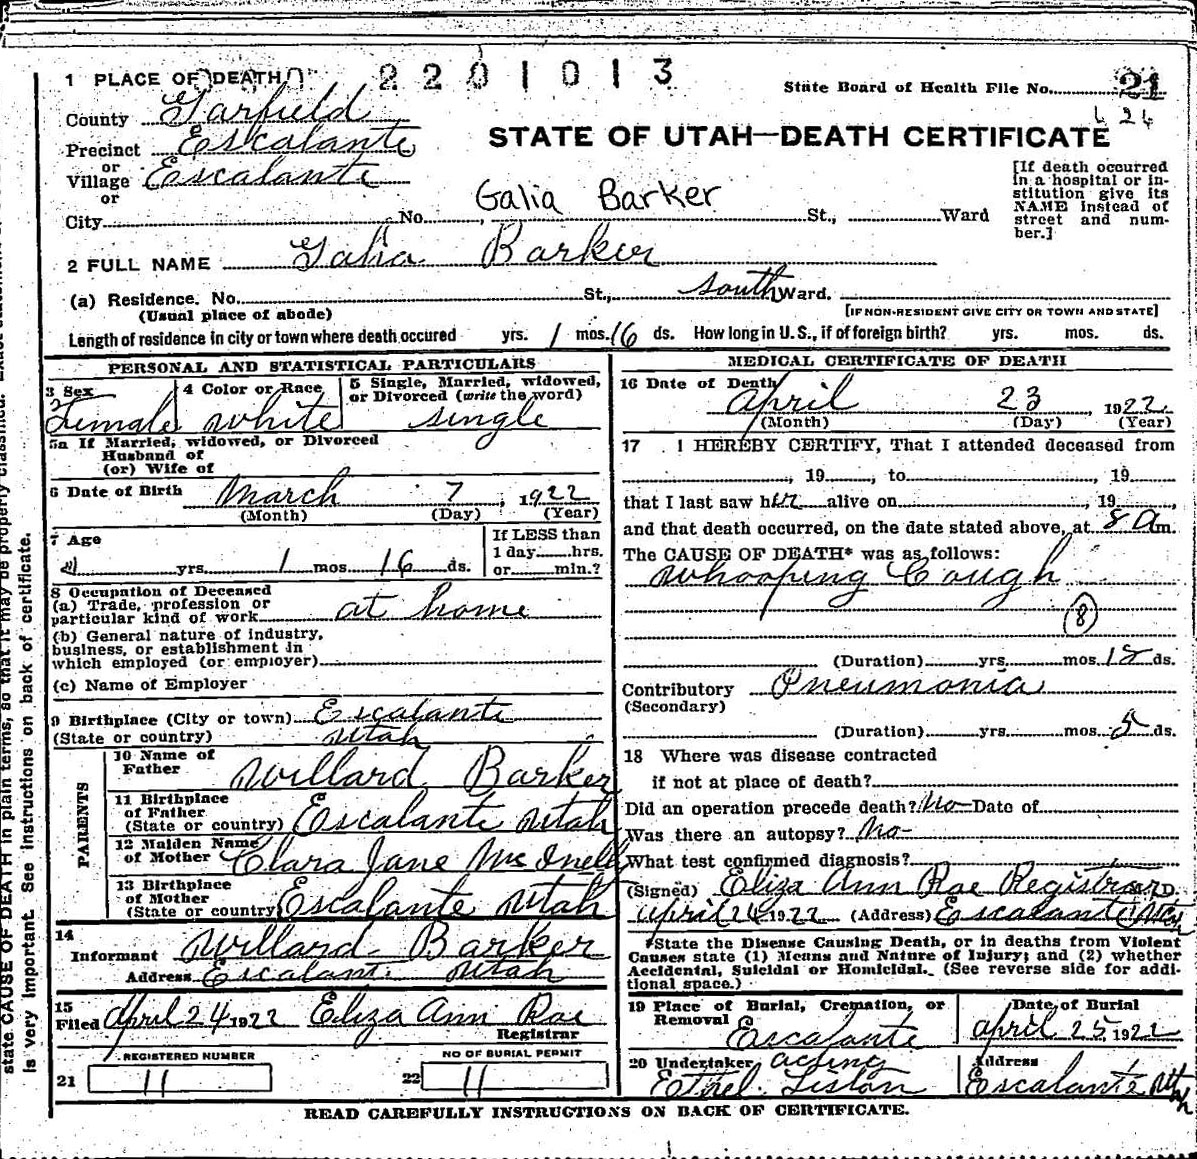 1 PLACE OF DEATH 2201013
State Board of Health File No. 21
County Garfield
L 26
Precinct Escalante
STATE OF UTAH—DEATH CERTIFICATE
or
Village Escalante
or
City No. Galia Barker St., Ward
[If death occurred in a hospital or institution give its NAME instead of street and number.]
2 FULL NAME Galia Barker
(a) Residence. No. St., south Ward.
(Usual place of abode) [IF NON-RESIDENT GIVE CITY OR TOWN AND STATE]
Length of residence in city or town where death occured yrs. 1 mos. 16 ds. How long in U. S., if of foreign birth? yrs. mos. ds.
PERSONAL AND STATISTICAL PARTICULARS
3 Sex 4 Color or Race 5 Single, Married, widowed,
or Divorced (write the word)
Female white single
5a If Married, widowed, or Divorced
Husband of
(or) Wife of
6 Date of Birth March 7, 1922
(Month) (Day) (Year)
7 Age If LESS than
1 day hrs.
yrs. 1 mos. 16 ds. or min.?
8 Occupation of Deceased
(a) Trade, profession or
particular kind of work at home
(b) General nature of industry,
business, or establishment in
which employed (or employer)
(c) Name of Employer
9 Birthplace (City or town) Escalante
(State or country) Utah
PARENTS
10 Name of
Father Willard Barker
11 Birthplace
of Father
(State or country) Escalante Utah
12 Maiden Name
of Mother Clara Jane McInelly
13 Birthplace
of Mother
(State or country) Escalante Utah
14
Informant Willard Barker
Address Escalante Utah
15
Filed April 24 1922 Eliza Ann Roe
Registrar
REGISTERED NUMBER NO OF BURIAL PERMIT
21 11 22 11
MEDICAL CERTIFICATE OF DEATH
16 Date of Death
April 23, 1922
(Month) (Day) (Year)
17 I HEREBY CERTIFY, That I attended deceased from
, 19 to , 19
that I last saw her alive on , 19
and that death occurred, on the date stated above, at 8 a m.
The CAUSE OF DEATH* was as follows:
Whooping Cough
(8)
(Duration) yrs. mos. 18 ds.
Contributory Pneumonia
(Secondary)
(Duration) yrs. mos. 5 ds.
18 Where was disease contracted
if not at place of death?
Did an operation precede death? No Date of
Was there an autopsy? No
What test confirmed diagnosis?
(Signed) Eliza Ann Roe Registrar M.D.
April 24 1922 (Address) Escalante Utah
*State the Disease Causing Death, or in deaths from Violent
Causes state (1) Means and Nature of Injury; and (2) whether
Accidental, Suicidal or Homicidal. (See reverse side for addi-
tional space.)
19 Place of Burial, Cremation, or Date of Burial
Removal Escalante April 25, 1922
20 Undertaker acting Address
Ethel Liston Escalante Utah
READ CAREFULLY INSTRUCTIONS ON BACK OF CERTIFICATE.
state CAUSE OF DEATH in plain terms, so that it may be properly classified.
is very important. See instructions on back of certificate.